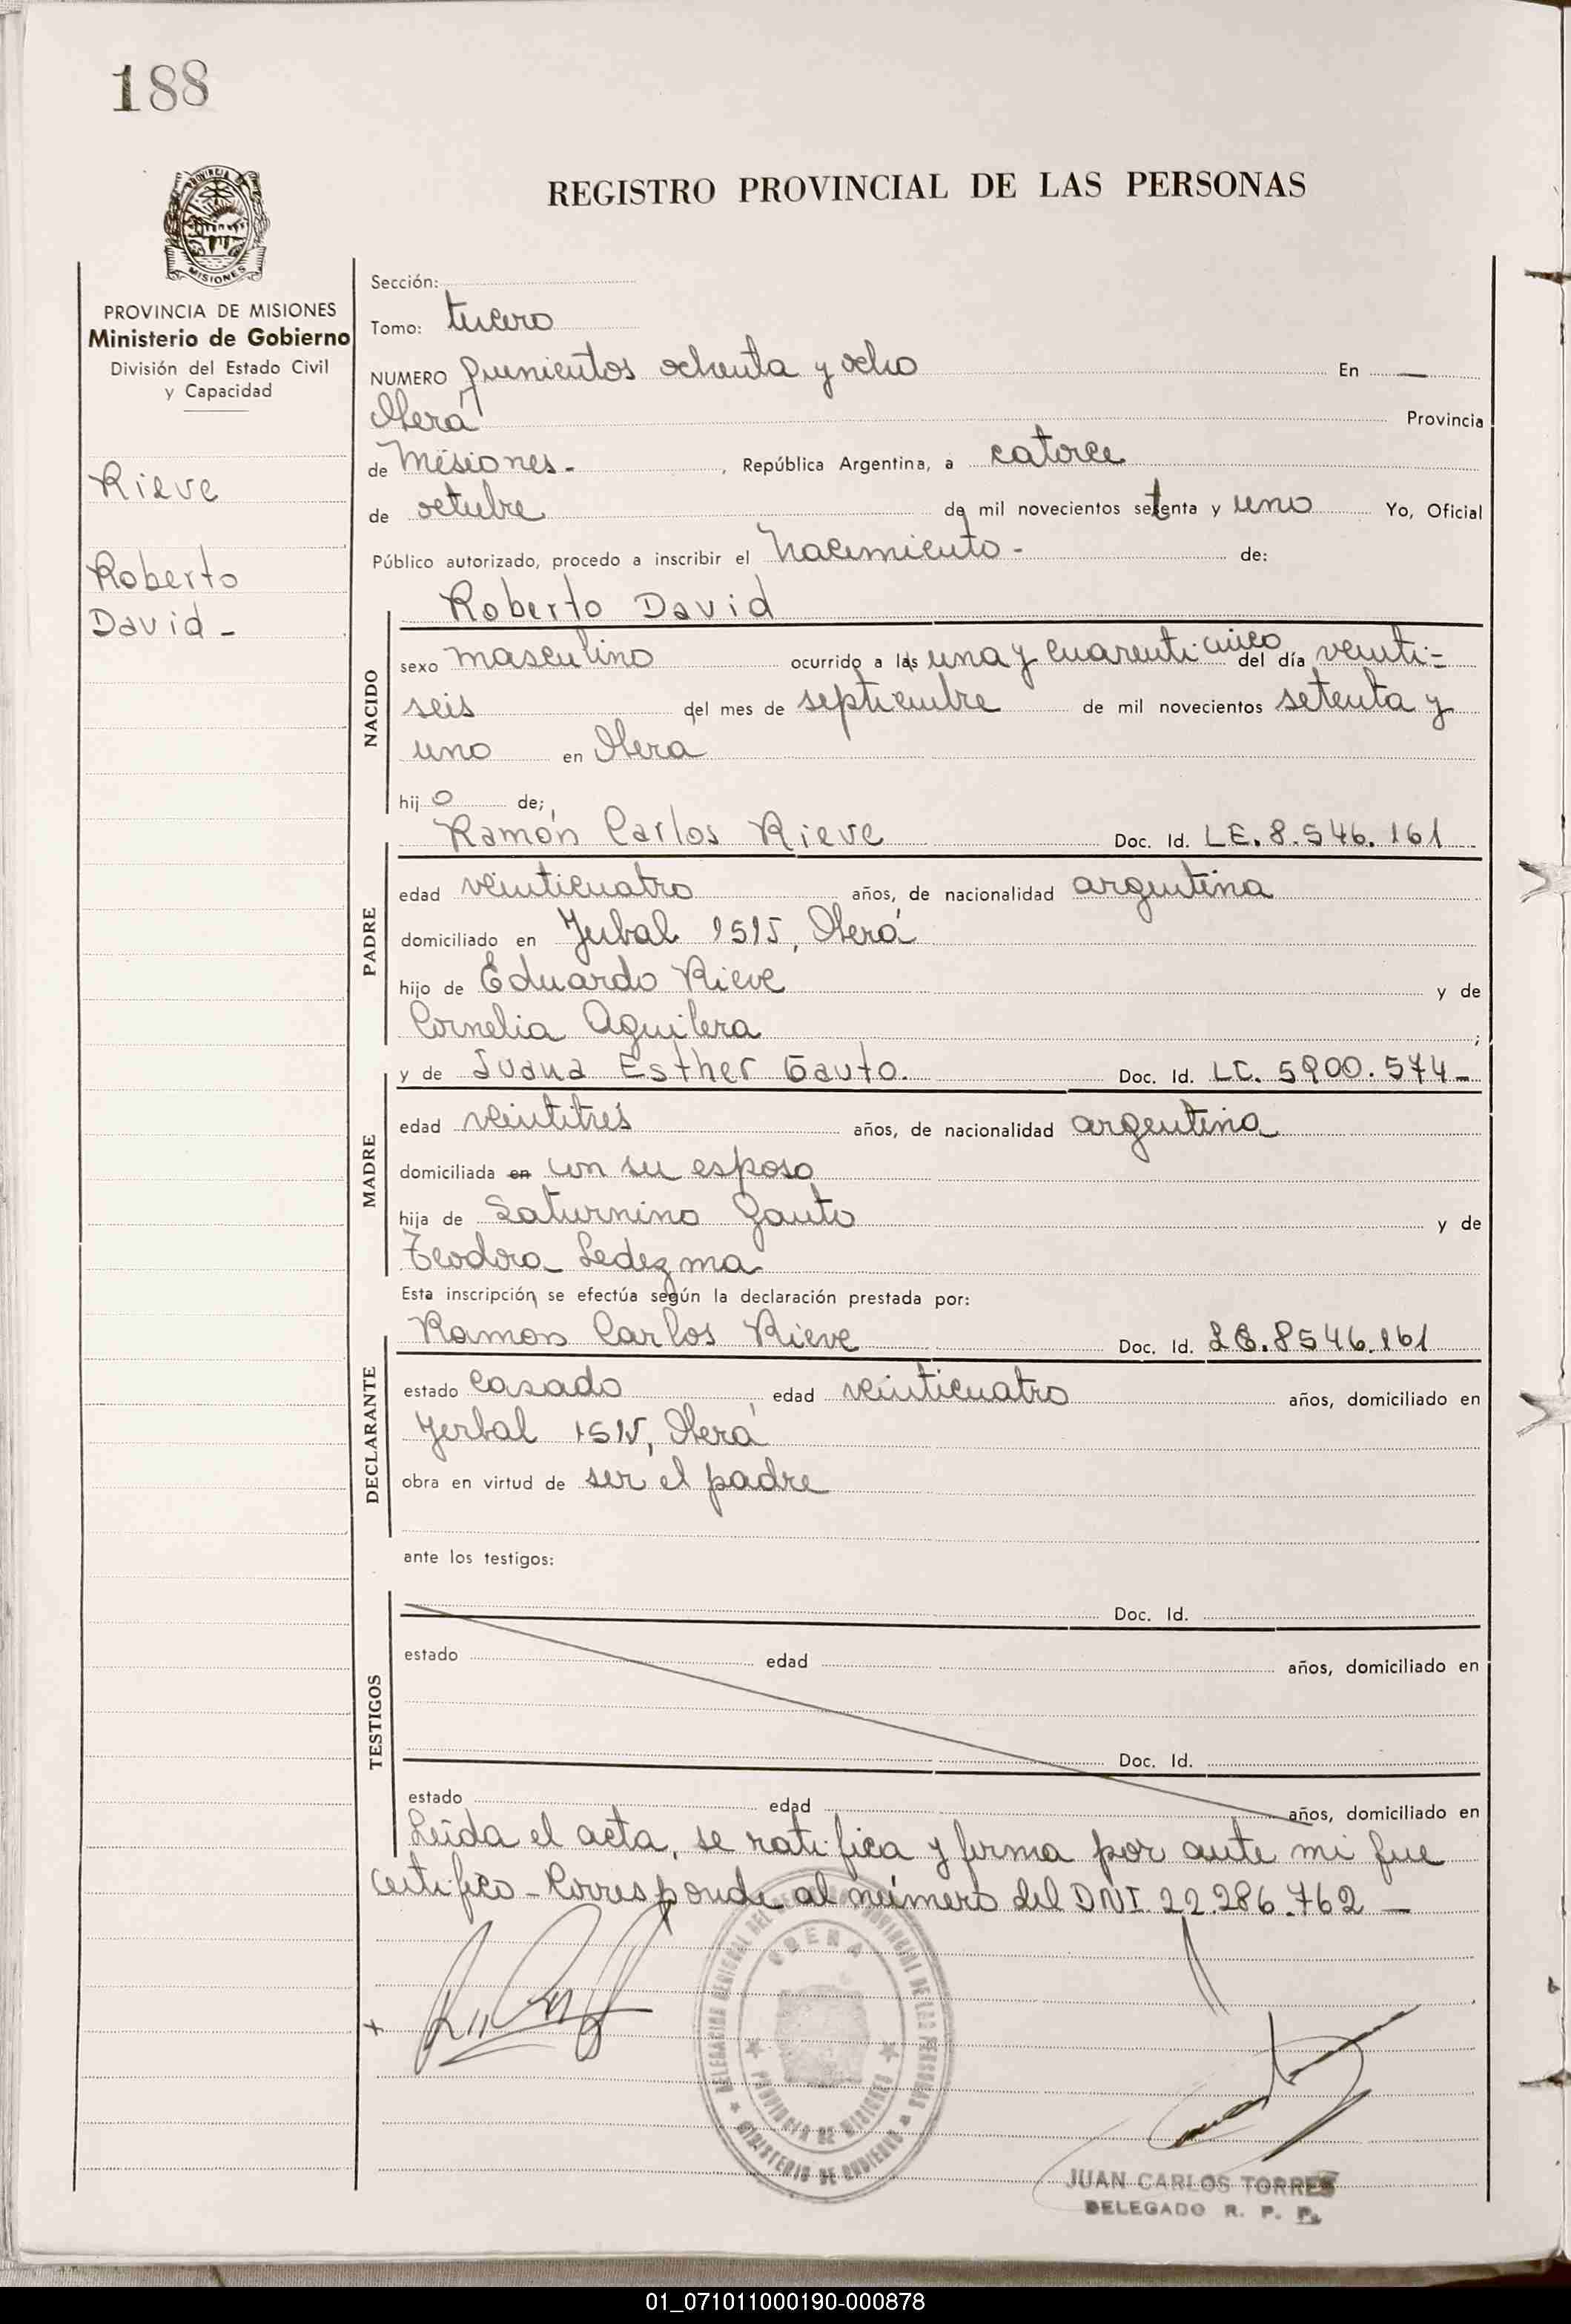 188
REGISTRO PROVINCIAL DE LAS PERSONAS
PROVINCIA DE
MISIONES
PROVINCIA DE MISIONES
Ministerio de Gobierno
División del Estado Civil
y Capacidad
Rieve
Roberto
David -
Sección:
Tomo: tercero
NUMERO quinientos ochenta y ocho En —
Oberá Provincia
de Misiones. - , República Argentina, a catorce
de octubre de mil novecientos setenta y uno Yo, Oficial
Público autorizado, procedo a inscribir el Nacimiento - de:
NACIDO
Roberto David
sexo masculino ocurrido a las una y cuarenticinco del día veinti-
seis del mes de septiembre de mil novecientos setenta y
uno en Oberá
hijo de;
PADRE
Ramón Carlos Rieve Doc. Id. LE. 8.546.161
edad veinticuatro años, de nacionalidad argentina
domiciliado en Yerbal 1515, Oberá
hijo de Eduardo Rieve y de
Cornelia Aguilera ;
MADRE
y de Juana Esther Gauto. Doc. Id. LC. 5900.574 -
edad veintitrés años, de nacionalidad argentina
domiciliada en con su esposo
hija de Saturnino Gauto y de
Teodora Ledezma
Esta inscripción se efectúa según la declaración prestada por:
DECLARANTE
Ramon Carlos Rieve Doc. Id. LE. 8546.161
estado casado , edad veinticuatro años, domiciliado en
Yerbal 1515, Oberá
obra en virtud de ser el padre
ante los testigos:
TESTIGOS
Doc. Id.
estado edad años, domiciliado en
Doc. Id.
estado edad años, domiciliado en
Leída el acta, se ratifica y firma por ante mi que
certifico - Corresponde al número del DNI. 22.286.762 —
DELEGACION REGIONAL DEL REGISTRO PROVINCIAL DE LAS PERSONAS
OBERA
PROVINCIA DE MISIONES
MINISTERIO DE GOBIERNO
JUAN CARLOS TORRES
DELEGADO R. P. P.
01_071011000190-000878